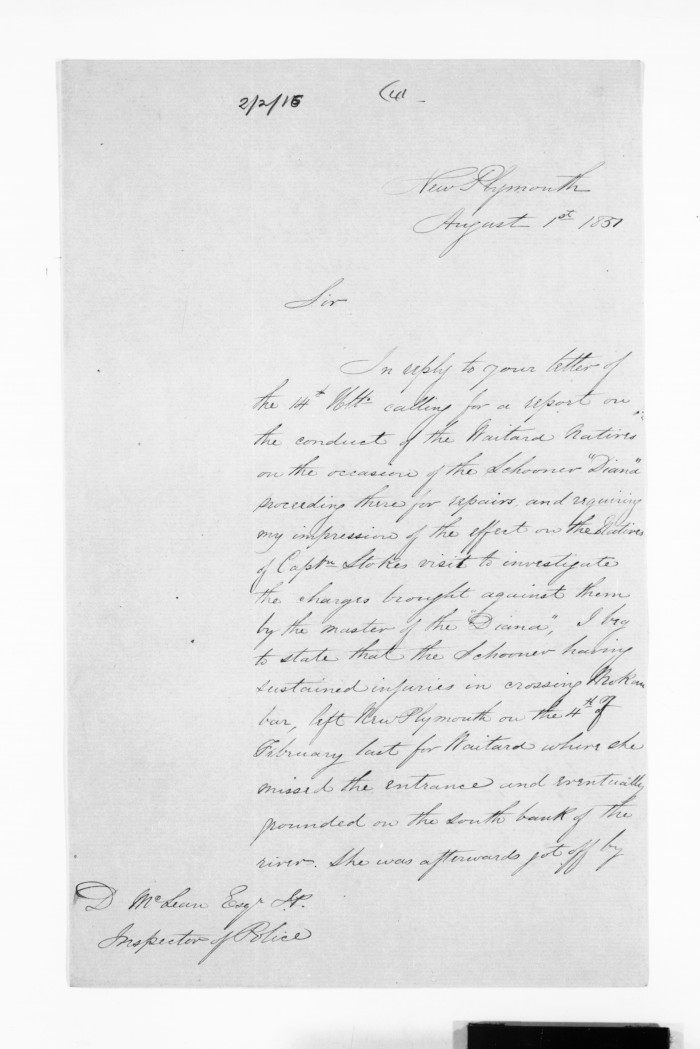 2/2/15 (4)
New Plymouth
August 1st 1851
Sir
In reply to your letter of
the 14th Ulto calling for a report on
the conduct of the Waitara Natives
on the occasion of the Schooner "Diana"
proceeding there for repairs, and requiring
my impression of the effect on the Natives
of Captn Stokes visit to investigate
the charges brought against them
by the master of the "Diana", I beg
to state that the Schooner having
sustained injuries in crossing Mokau
bar, left New Plymouth on the 4th of
February last for Waitara where she
missed the entrance and eventually
grounded on the south bank of the
river. She was afterwards got off by
D McLean Esqr J.P.
Inspector of Police